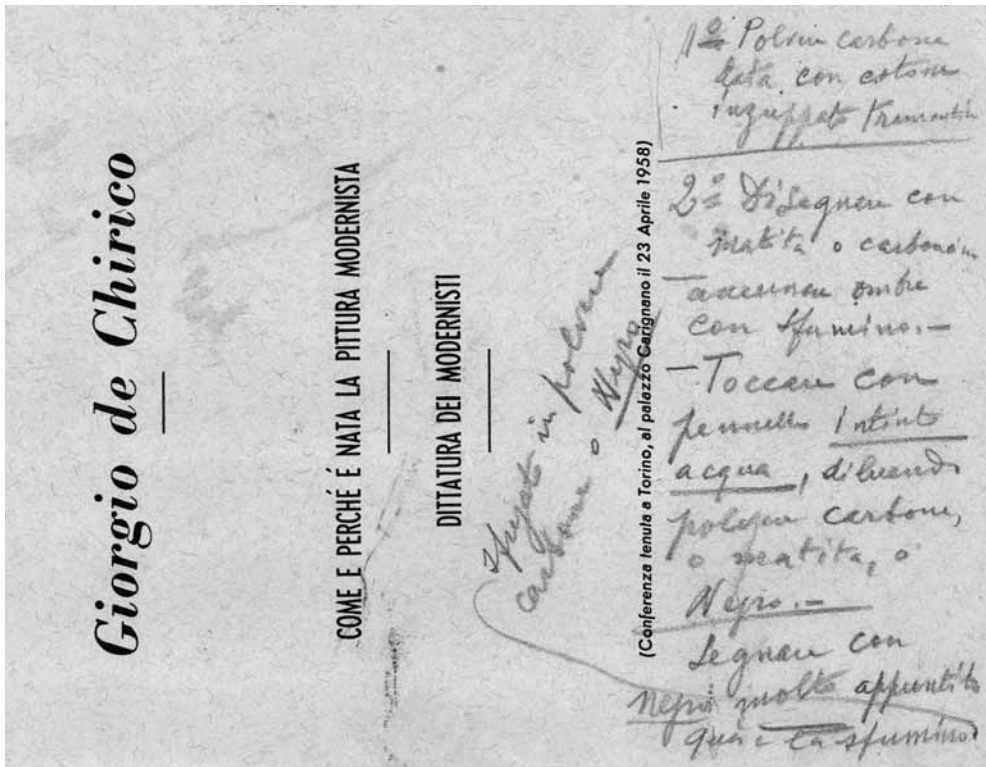 Giorgio de Chirico
COME E PERCHÉ É NATA LA PITTURA MODERNISTA
DITTATURA DEI MODERNISTI
(Conferenza tenuta a Torino, al palazzo Carignano il 23 Aprile 1958)
1º Polvere carbone
data con cotone
inzuppato trementina
2º Disegnare con
matita o carboncino
accennare ombre
con sfumino.—
— Toccare con
pennello intinto
acqua, diluendo
polvere carbone,
o matita, o
Negro.—
Segnare con
negro molto appuntito
qua e la sfumino
in polvere
carbone o Negro